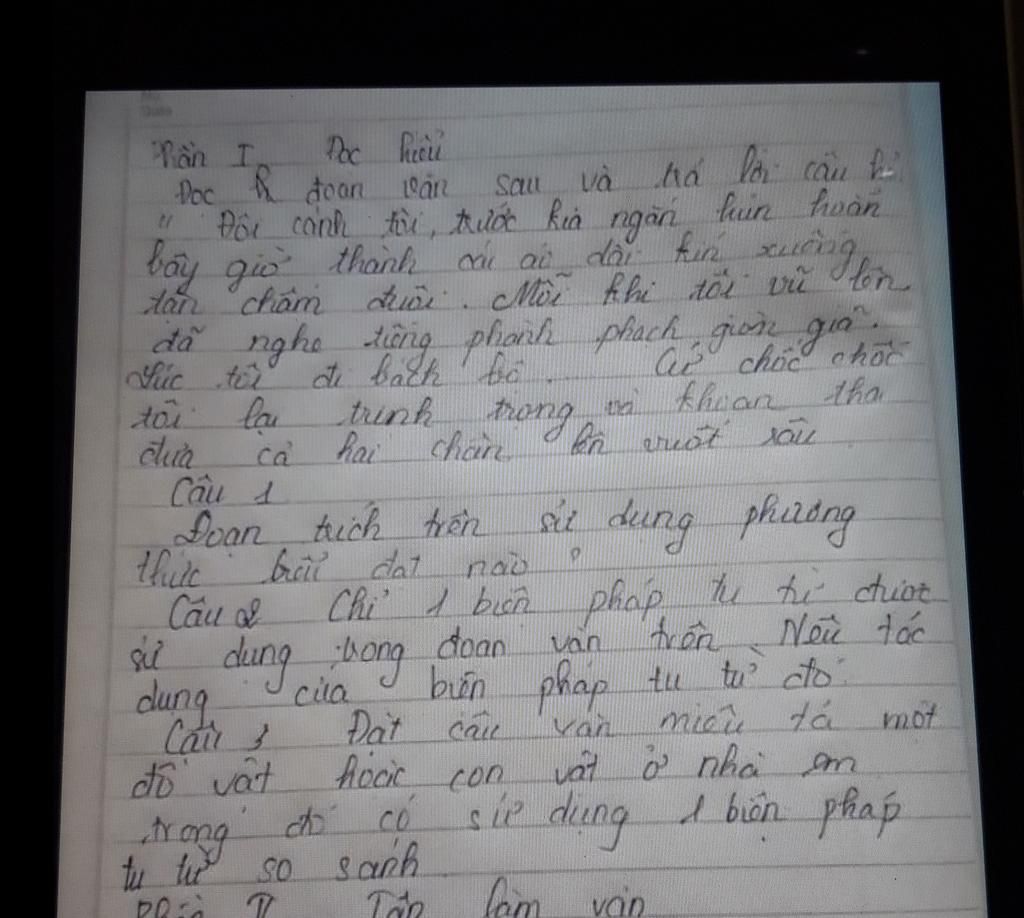 Phần I Đọc hiểu
Đọc đoạn văn sau và trả lời câu h
" Đôi cánh tôi, trước kia ngắn hủn hoẳn
bây giờ thành cái áo dài kín xuống
tận chấm đuôi. Mỗi khi tôi vũ lên
đã nghe tiếng phành phạch giòn giã.
tôi đi bách bộ Cứ chốc chốc
tôi lại trịnh trọng và khoan thai
đưa cả hai chân lên vuốt râu
Câu 1
Đoạn trích trên sử dụng phương
thức biểu đạt nào ?
Câu 2 Chỉ 1 biện pháp tu từ được
sử dụng trong đoạn văn trên. Nêu tác
dụng của biện pháp tu từ đó.
Câu 3 Đặt câu văn miêu tả một
đồ vật hoặc con vật ở nhà em
trong đó có sử dụng 1 biện pháp
tu từ so sánh
Phần II Tập làm văn